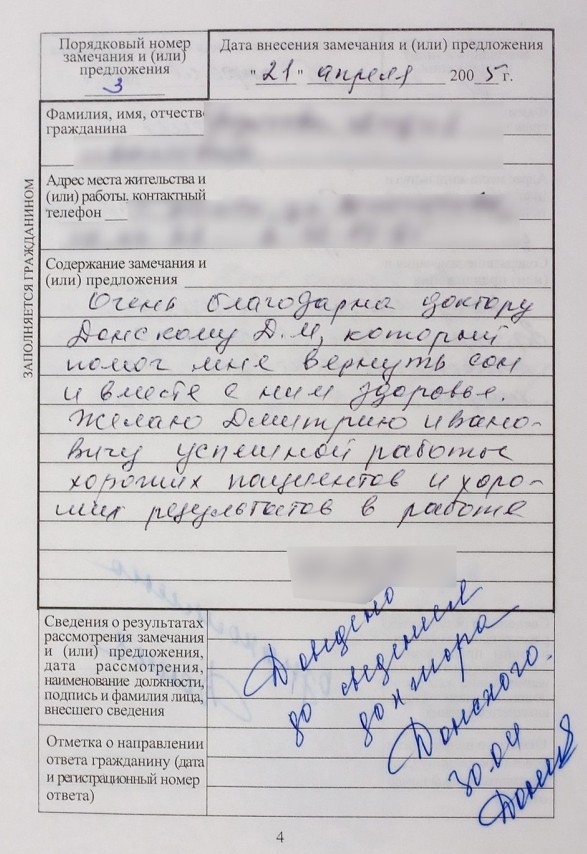 Порядковый номер
замечания и (или)
предложения
3
Дата внесения замечания и (или) предложения
"21" апреля 2005 г.
Фамилия, имя, отчество
гражданина
Адрес места жительства и
(или) работы, контактный
телефон
ЗАПОЛНЯЕТСЯ ГРАЖДАНИНОМ
Содержание замечания и
(или) предложения
Очень благодарна доктору
Донскому Д.И, который
помог мне вернуть сон
и вместе с ним здоровье.
Желаю Дмитрию Ивано-
вичу успешной работы
хороших пациентов и хоро-
ших результатов в работе
Сведения о результатах
рассмотрения замечания
и (или) предложения,
дата рассмотрения,
наименование должности,
подпись и фамилия лица,
внесшего сведения
Доведено
до сведения
доктора
Донского.
30.04
Отметка о направлении
ответа гражданину (дата
и регистрационный номер
ответа)
4